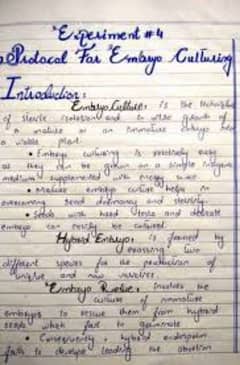 Experiment #4
Protocol For Embryo Culturing
Introduction:
Embryo Culture: is the technique
of sterile isolation and in vitro growth of
a mature or an immature embryo
a viable plant.
• Embryo culturing is relatively easy
as they can be grown on a simple inorganic
medium supplemented with energy source
• Mature embryo culture helps in
overcoming seed dormancy and sterility.
• Seeds with hard and delicate
embryo can easily be cultured.
Hybrid Embryo: is formed by
crossing two
different species for the production of
unique and new varieties.
Embryo Rescue: involves the
culture of immature
embryos to rescue them from hybrid
seeds which fail to germinate
• Consequently, hybrid endosperm
fails to develop leading the abortion